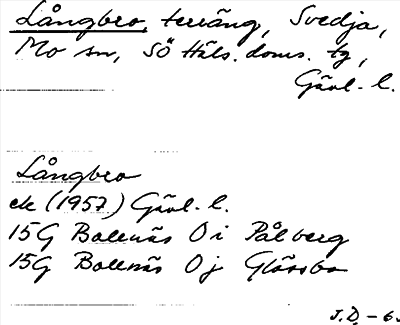 Långbro, terräng, Svedja,
Mo sn, Sö Häls. doms. tg,
Gävl. l.
Långbro
ek (1957) Gävl. l.
15G Bollnäs 0 i Pålberg
15G Bollnäs 0 j Glössbo
J.D. - 6.